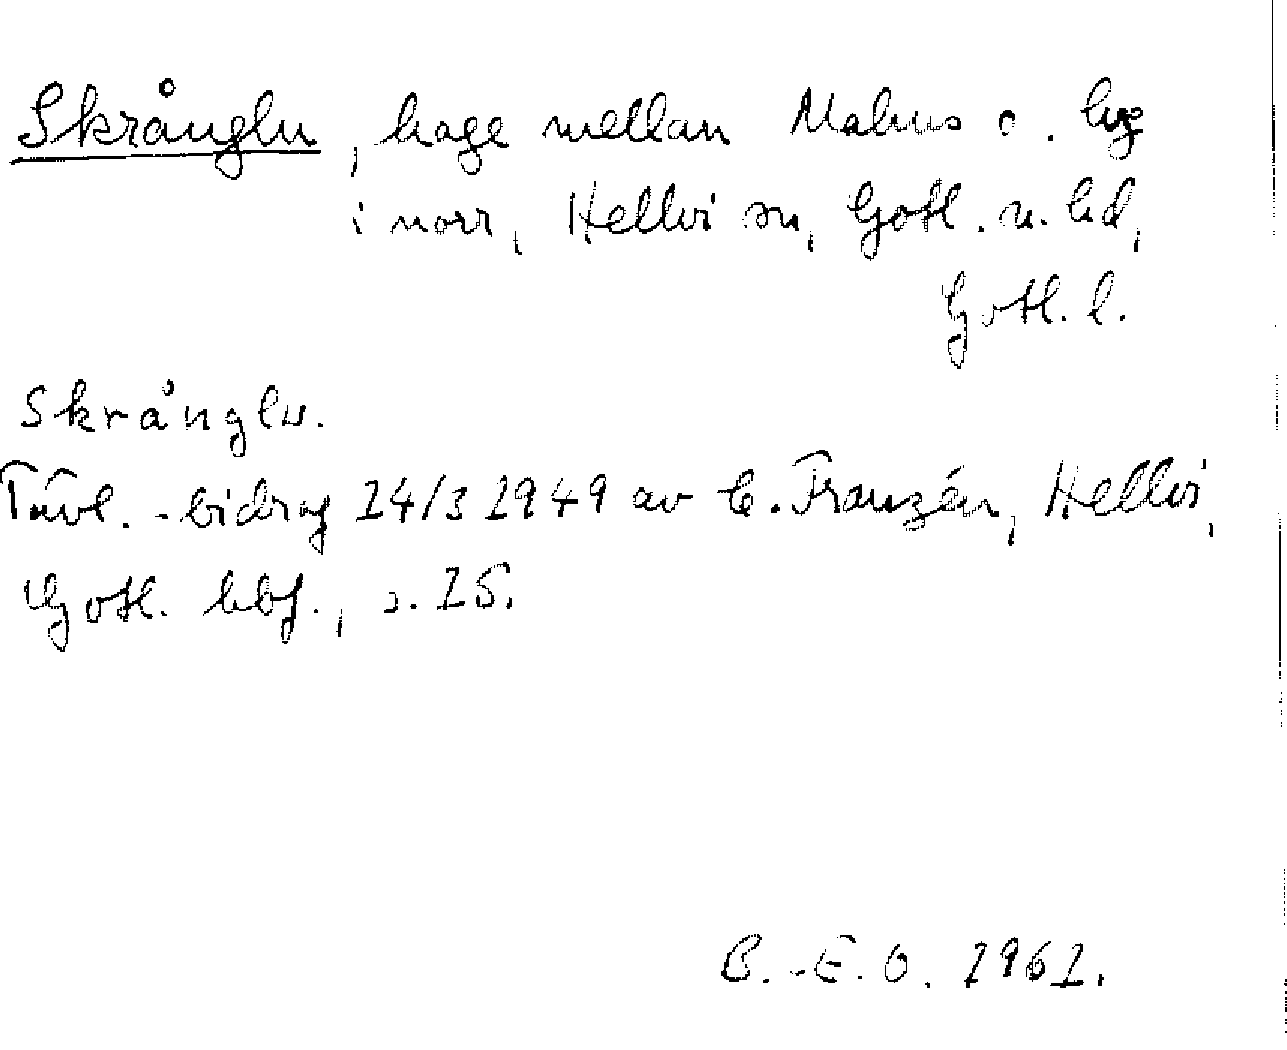 Skrånglu, hage mellan Malms o. lyz
i norr, Hellvi sn, Gotl. n. hd,
Gotl. l.
Skrånglu.
Tävl.-bidrag 24/3 1949 av C. Franzén, Hellvi,
Gotl. hbf., s. 15.
B.-E. O. 1961.